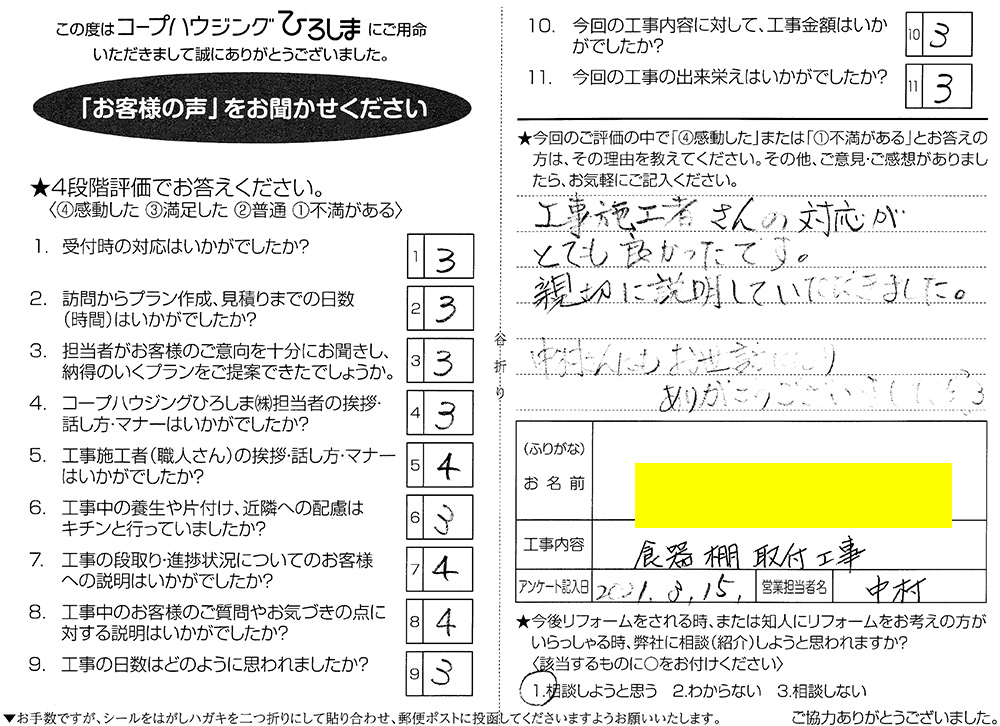 この度はコープハウジングひろしまにご用命
いただきまして誠にありがとうございました。
「お客様の声」をお聞かせください
★4段階評価でお答えください。
〈④感動した ③満足した ②普通 ①不満がある〉
1. 受付時の対応はいかがでしたか?
1 3
2. 訪問からプラン作成、見積りまでの日数
(時間)はいかがでしたか?
2 3
3. 担当者がお客様のご意向を十分にお聞きし、
納得のいくプランをご提案できたでしょうか。
3 3
4. コープハウジングひろしま㈱担当者の挨拶・
話し方・マナーはいかがでしたか?
4 3
5. 工事施工者(職人さん)の挨拶・話し方・マナー
はいかがでしたか?
5 4
6. 工事中の養生や片付け、近隣への配慮は
キチンと行っていましたか?
6 3
7. 工事の段取り・進捗状況についてのお客様
への説明はいかがでしたか?
7 4
8. 工事中のお客様のご質問やお気づきの点に
対する説明はいかがでしたか?
8 4
9. 工事の日数はどのように思われましたか?
9 3
▼お手数ですが、シールをはがしハガキを二つ折りにして貼り合わせ、郵便ポストに投函してくださいますようお願いいたします。
谷折り
10. 今回の工事内容に対して、工事金額はいか
がでしたか?
10 3
11. 今回の工事の出来栄えはいかがでしたか?
11 3
★今回のご評価の中で「④感動した」または「①不満がある」とお答えの
方は、その理由を教えてください。その他、ご意見・ご感想がありまし
たら、お気軽にご記入ください。
工事施工者さんの対応が
とても良かったです。
親切に説明していただきました。
中村さんにもお世話になり
ありがとうございました
(ふりがな)
お名前
工事内容
食器棚取付工事
アンケート記入日
2021. 8, 15,
営業担当者名
中村
★今後リフォームをされる時、または知人にリフォームをお考えの方が
いらっしゃる時、弊社に相談(紹介)しようと思われますか?
〈該当するものに○をお付けください〉
1.相談しようと思う 2.わからない 3.相談しない
ご協力ありがとうございました。